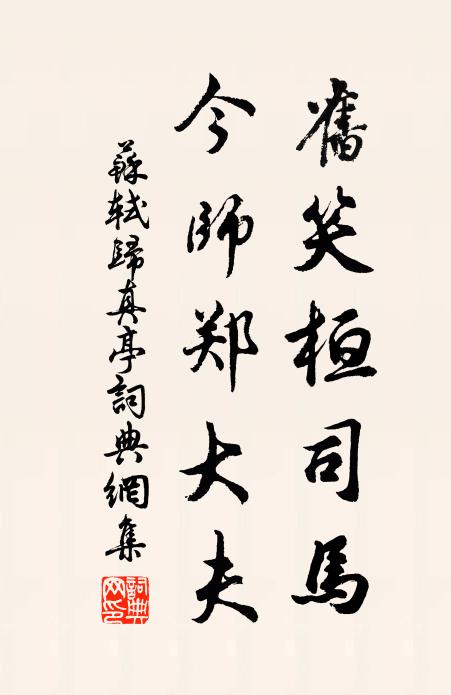 舊笑桓司馬
今師郑大夫
蘇軾歸真亭詞典網集
詞典網印